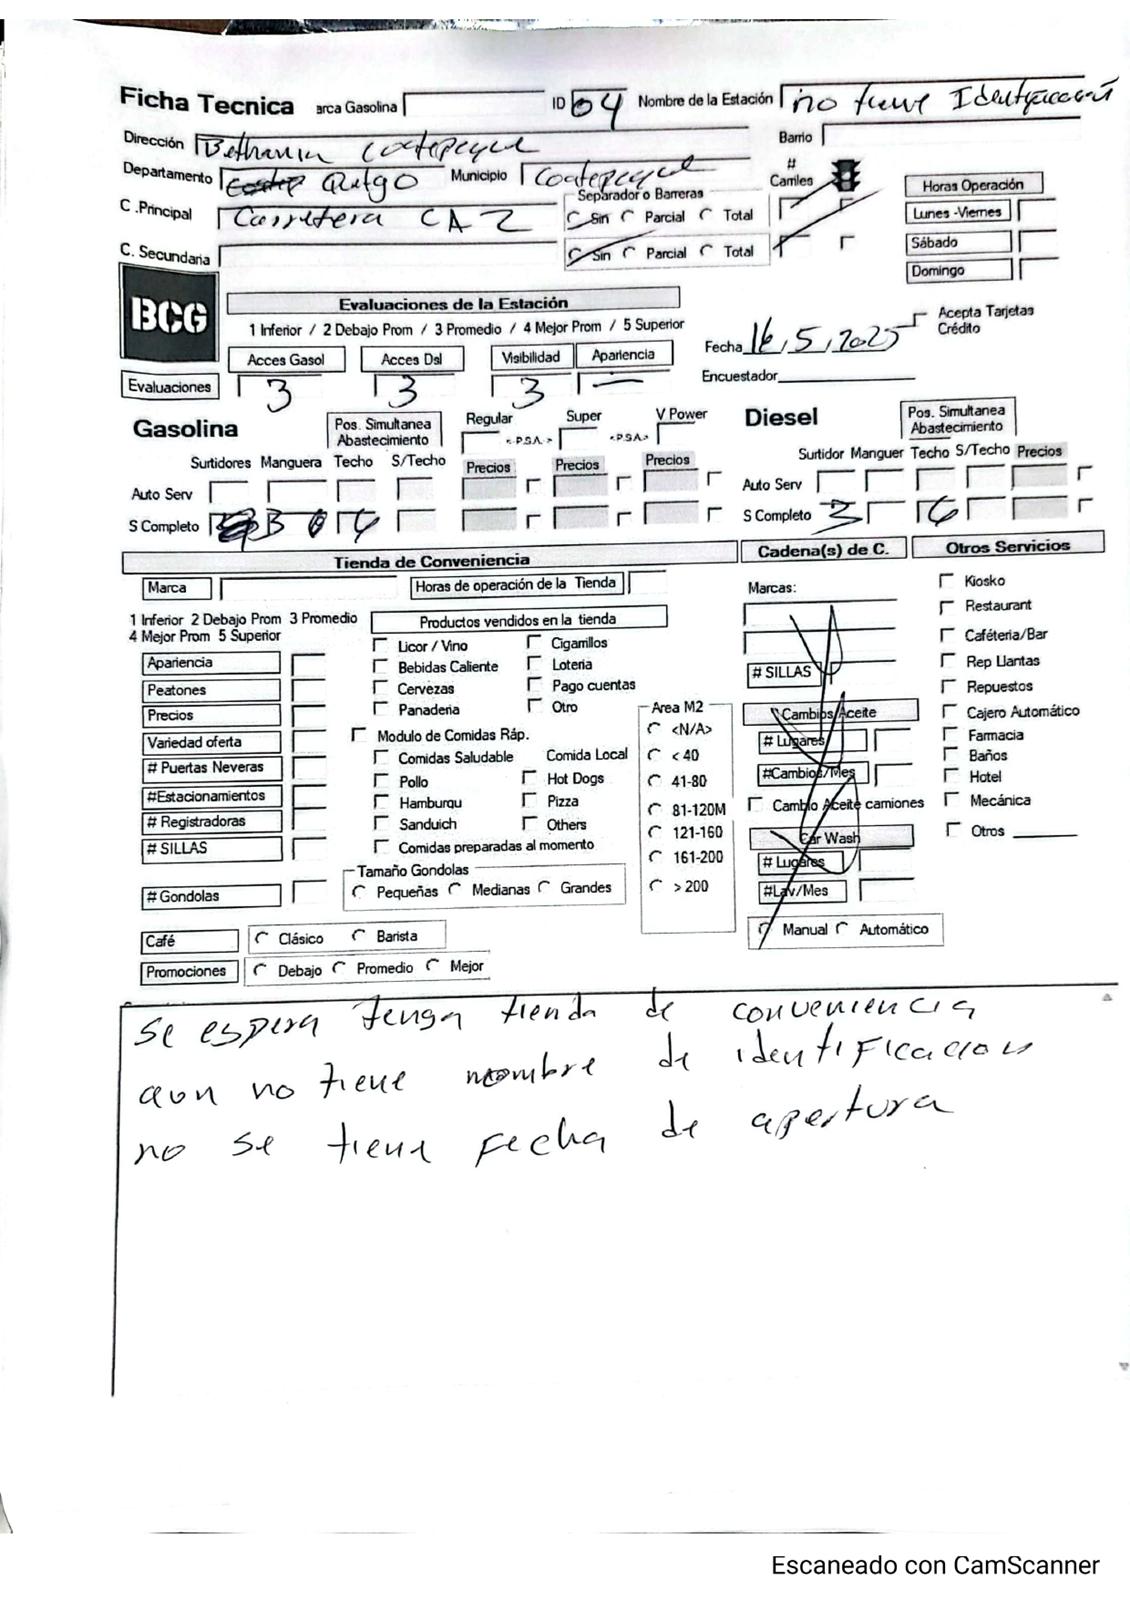 Ficha Tecnica arca Gasolina ID 04 Nombre de la Estación no tiene Identificación
Dirección Bethania Coatepeque Barrio
Departamento Qutgo Municipio Coatepeque # Carriles
C .Principal Carretera CA 2 Separador o Barreras Sin Parcial Total
C. Secundaria Sin Parcial Total
Horas Operación
Lunes -Viernes
Sábado
Domingo
BCG
Evaluaciones de la Estación
1 Inferior / 2 Debajo Prom / 3 Promedio / 4 Mejor Prom / 5 Superior
Acces Gasol Acces Dsl Visibilidad Apariencia
Evaluaciones 3 3 3 —
Fecha 16,5,2025
Acepta Tarjetas Crédito
Encuestador
Gasolina Pos. Simultanea Abastecimiento Regular <-P.S.A.-> Super <-P.S.A.-> V Power
Surtidores Manguera Techo S/Techo Precios Precios Precios
Auto Serv
S Completo
Diesel Pos. Simultanea Abastecimiento
Surtidor Manguer Techo S/Techo Precios
Auto Serv
S Completo 3 6
Tienda de Conveniencia
Marca Horas de operación de la Tienda
1 Inferior 2 Debajo Prom 3 Promedio
4 Mejor Prom 5 Superior
Apariencia
Peatones
Precios
Variedad oferta
# Puertas Neveras
#Estacionamientos
# Registradoras
# SILLAS
# Gondolas
Productos vendidos en la tienda
Licor / Vino Cigarrillos
Bebidas Caliente Loteria
Cervezas Pago cuentas
Panaderia Otro
Modulo de Comidas Ráp.
Comidas Saludable Comida Local
Pollo Hot Dogs
Hamburqu Pizza
Sanduich Others
Comidas preparadas al momento
Tamaño Gondolas
Pequeñas Medianas Grandes
Area M2
<N/A>
< 40
41-80
81-120M
121-160
161-200
> 200
Café Clásico Barista
Promociones Debajo Promedio Mejor
Cadena(s) de C.
Marcas:
# SILLAS
Cambios/Aceite
# Lugares
#Cambios/Mes
Cambio Aceite camiones
Car Wash
# Lugares
#Lav/Mes
Manual Automático
Otros Servicios
Kiosko
Restaurant
Caféteria/Bar
Rep Llantas
Repuestos
Cajero Automático
Farmacia
Baños
Hotel
Mecánica
Otros
se espera tenga tienda de conveniencia
aun no tiene nombre de identificacion
no se tiene fecha de apertura
Escaneado con CamScanner